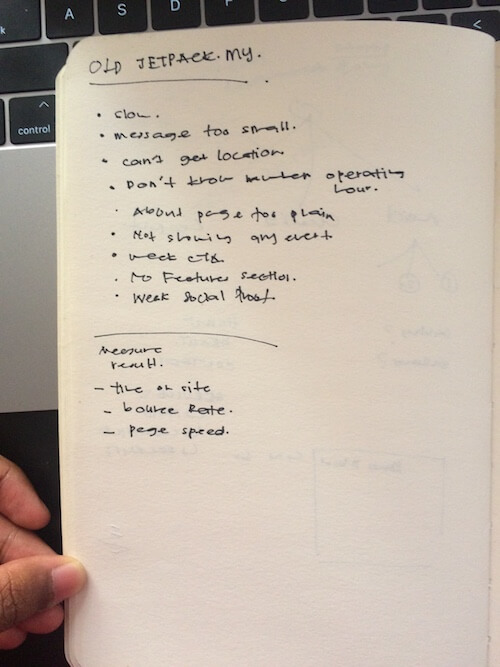 A S D
control
<
OLD JETPACK.MY.
• Slow.
• message too small.
• can't get location.
• Don't know operating
hour.
• About page too plain
• Not showing any event
• week CTA.
• No Features section.
• Week Social Proof.
measure
result.
– time on site
– bounce Rate.
– page speed.